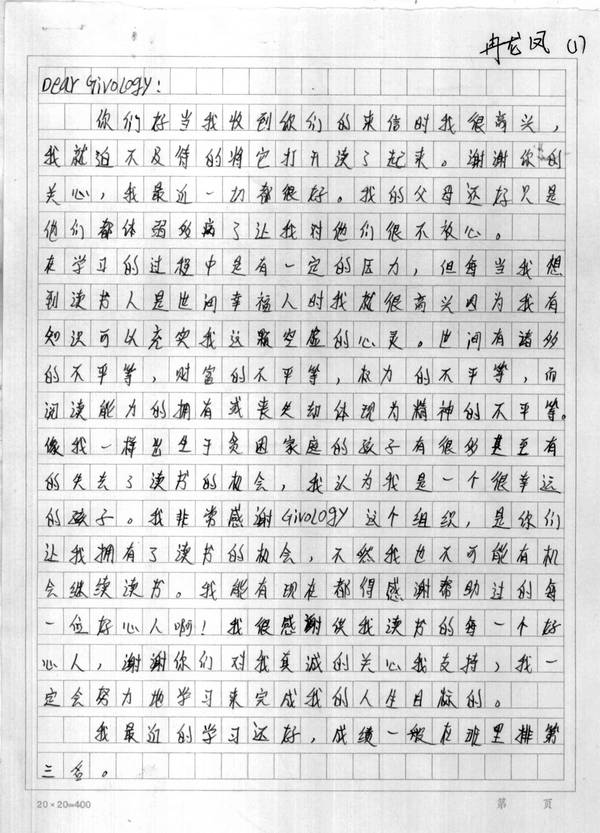 冉龙凤 (1)
Dear Givology:
你们好当我收到你们的来信时我很高兴,
我就迫不及待的将它打开读了起来。谢谢你的
关心,我最近一切都很好。我的父母还好只是
他们都体弱多病了让我对他们很不放心。
在学习的过程中是有一定的压力,但每当我想
到读书人是世间幸福人时我就很高兴因为我有
知识可以充实我这颗空虚的心灵。世间有诸多
的不平等,财富的不平等,权力的不平等,而
阅读能力的拥有或丧失却体现为精神的不平等。
像我一样出生于贫困家庭的孩子有很多甚至有
的失去了读书的机会,我认为我是一个很幸运
的孩子。我非常感谢Givology这个组织,是你们
让我拥有了读书的机会,不然我也不可能有机
会继续读书。我能有现在都得感谢帮助过的每
一位好心人啊!我很感谢供我读书的每一个好
心人,谢谢你们对我真诚的关心我支持,我一
定会努力地学习来完成我的人生目标的。
我最近的学习还好,成绩一般在班里排第
三名。
20×20=400 第 页